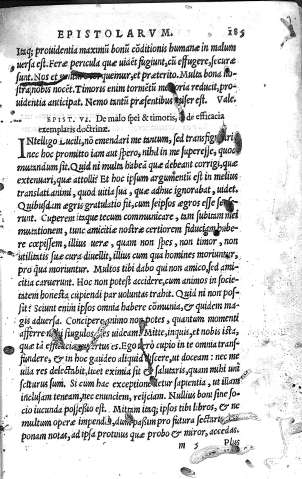 EPISTOLARVM. 185
Itaq; prouidentia maximũ bonũ cõditionis humanæ in malum
uersa est. Feræ pericula quæ uidẽt fugiunt, cũ effugere, securæ
sunt. Nos et uenturo torquemur, et præterito. Multa bona no
stra nobis nocẽt. Timoris enim tormẽtũ memoria reducit, pro-
uidentia anticipat. Nemo tantũ præsentibus miser est. Vale.
EPIST. VI. De malo spei & timoris, de efficacia
exemplaris doctrinæ.
INtelligo Lucili, nõ emendari me tantum, sed transfigurari
nec hoc promitto iam aut spero, nihil in me superesse, quod
mutandum sit. Quid ni multa habeã quæ debeant corrigi, quæ
extenuari, quæ attolli? Et hoc ipsum argumentũ est in melius
translati animi, quod uitia sua, quæ adhuc ignorabat, uidet.
Quibusdam ægris gratulatio fit, cum seipsos ægros esse sense
runt. Cuperem itaque tecum communicare, tam subitam mei
mutationem, tunc amicitiæ nostræ certiorem fiduciam habe-
re cœpissem, illius ueræ, quam non spes, non timor, non
utilitatis suæ cura diuellit, illius cum qua homines moriuntur,
pro qua moriuntur. Multos tibi dabo qui non amico, sed ami
citia caruerunt. Hoc non potest accidere, cum animos in socie-
tatem honesta cupiendi par uoluntas trahit. Quid ni non pos-
sit? Sciunt enim ipsos omnia habere cõmunia, & quidem ma-
gis aduersa. Concipere animo non potes, quantum momenti
afferre mihi singulos dies uideam. Mitte, inquis, et nobis ista,
quæ tã efficacia expertus es. Ego uero cupio in te omnia trans-
fundere, & in hoc gaudeo aliquid discere, ut doceam: nec me
ulla res delectabit, licet eximia sit & salutaris, quam mihi uni
sciturus sum. Si cum hac exceptione detur sapientia, ut illam
inclusam teneam, nec enunciem, reijciam. Nullius boni sine so-
cio iucunda possessio est. Mittam itaq; ipsos tibi libros, & ne
multum operæ impendas, dum passim pro futura sectaris, im-
ponam notas, ad ipsa protinus quæ probo & miror, accedas.
m 5 Plus